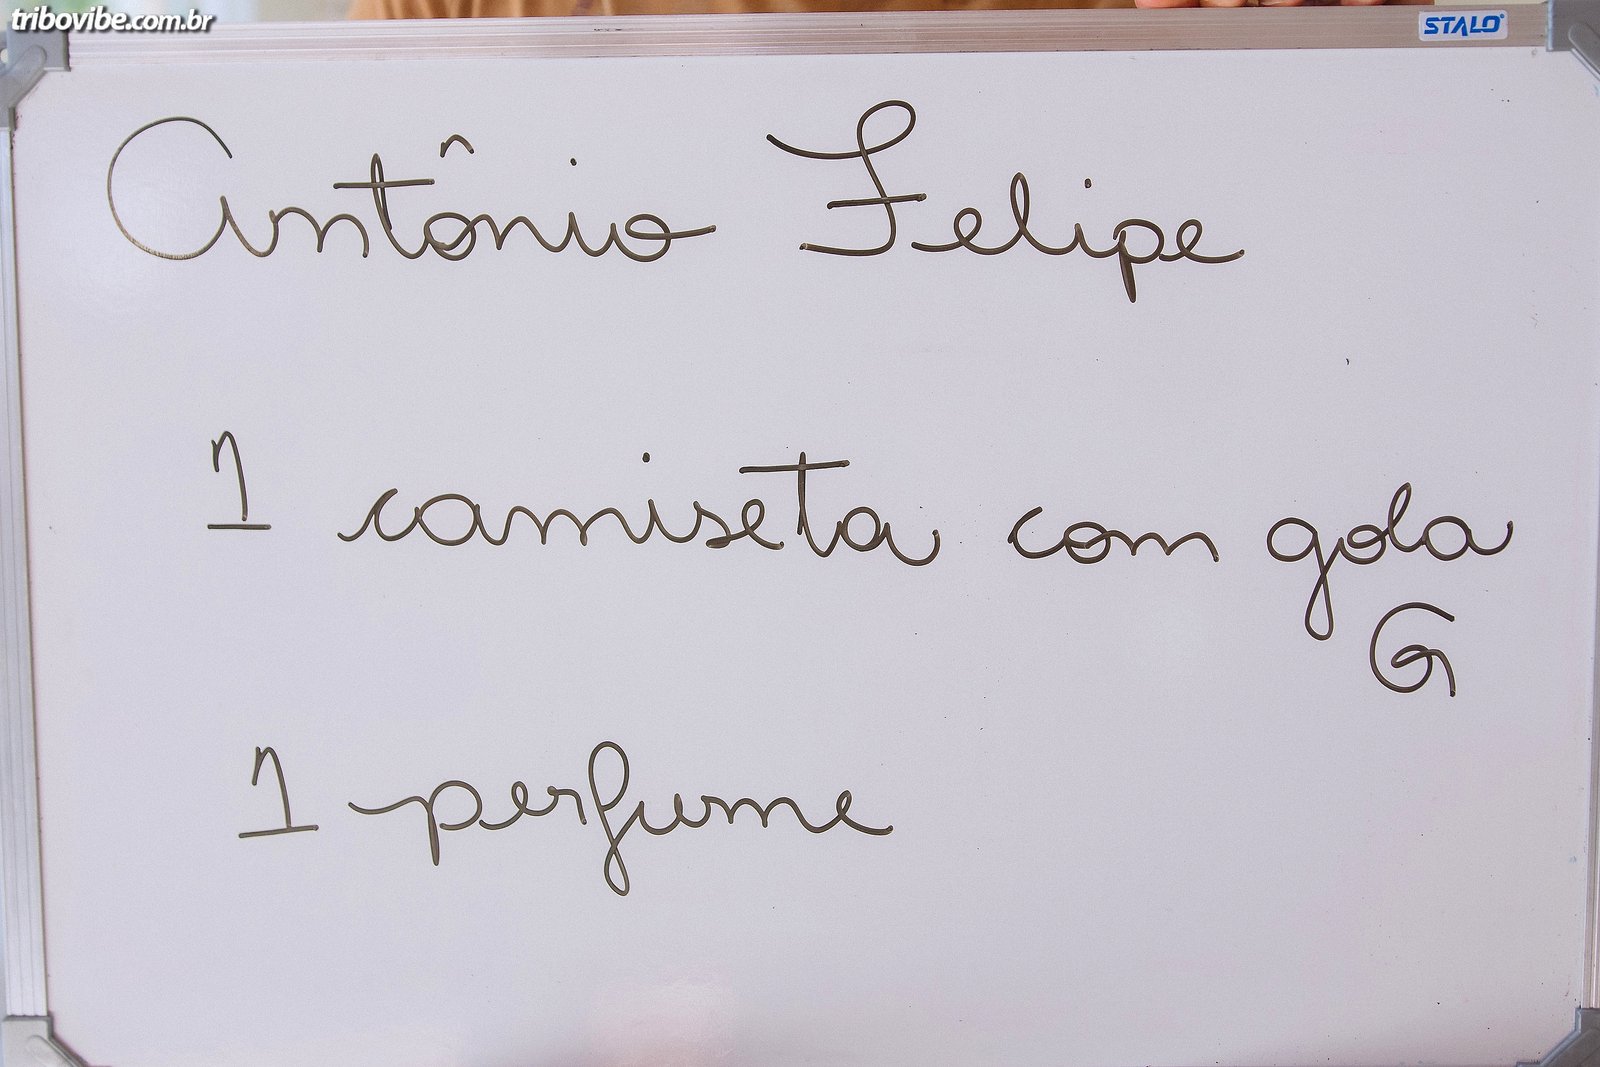 tribovibe.com.br
STALO
Antônio Felipe
1 camiseta com gola
G
1 perfume